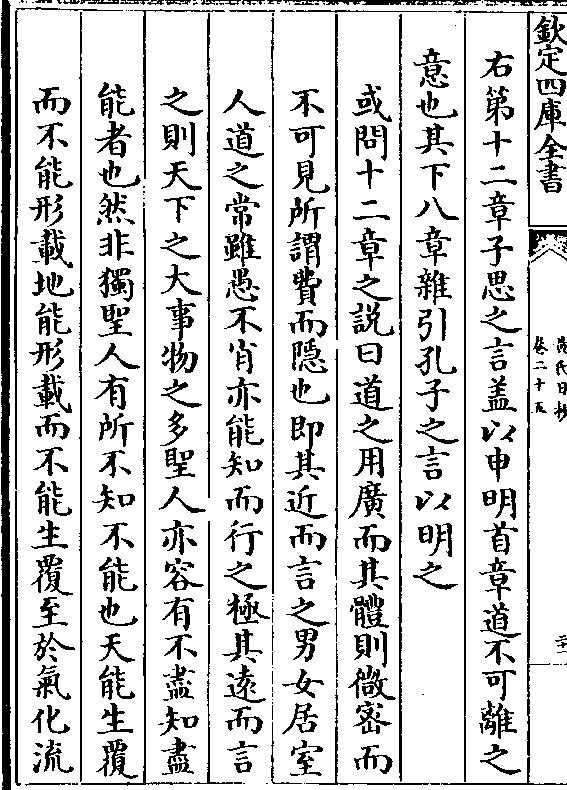 欽定四庫全書
黄氏日抄
卷二十五
右第十二章子思之言盖以申明首章道不可離之
意也其下八章雜引孔子之言以明之
或問十二章之說曰道之用廣而其體則微密而
不可見所謂費而隠也即其近而言之男女居室
人道之常雖愚不肖亦能知而行之極其遠而言
之則天下之大事物之多聖人亦容有不盡知盡
能者也然非獨聖人有所不知不能也天能生覆
而不能形載地能形載而不能生覆至於氣化流